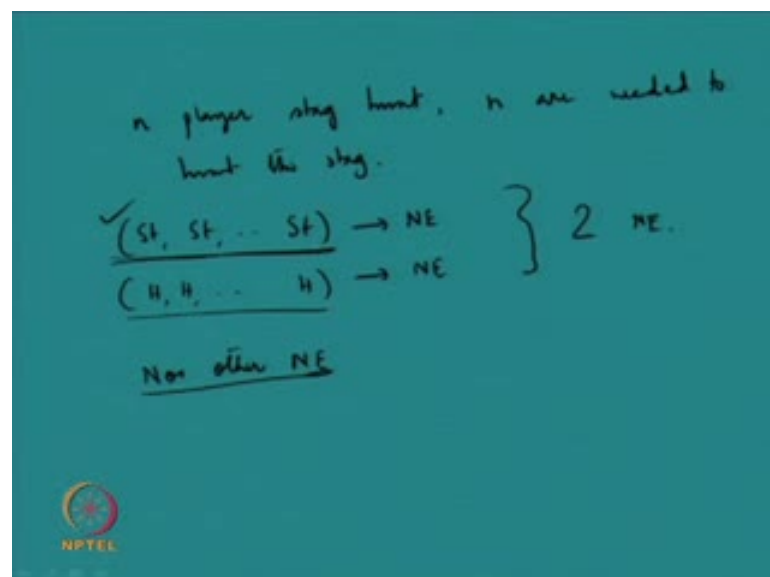 n player stag hunt, n are needed to
hunt the stag.
(St, St, .. St) → NE
(H, H, .. H) → NE } 2 NE.
Non other NE
NPTEL